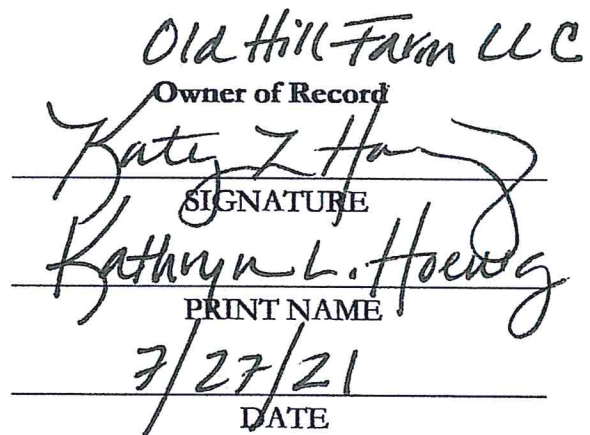 Old Hill Farm LLC
Owner of Record
Katy L Hoenig
SIGNATURE
Kathryn L. Hoenig
PRINT NAME
7/27/21
DATE